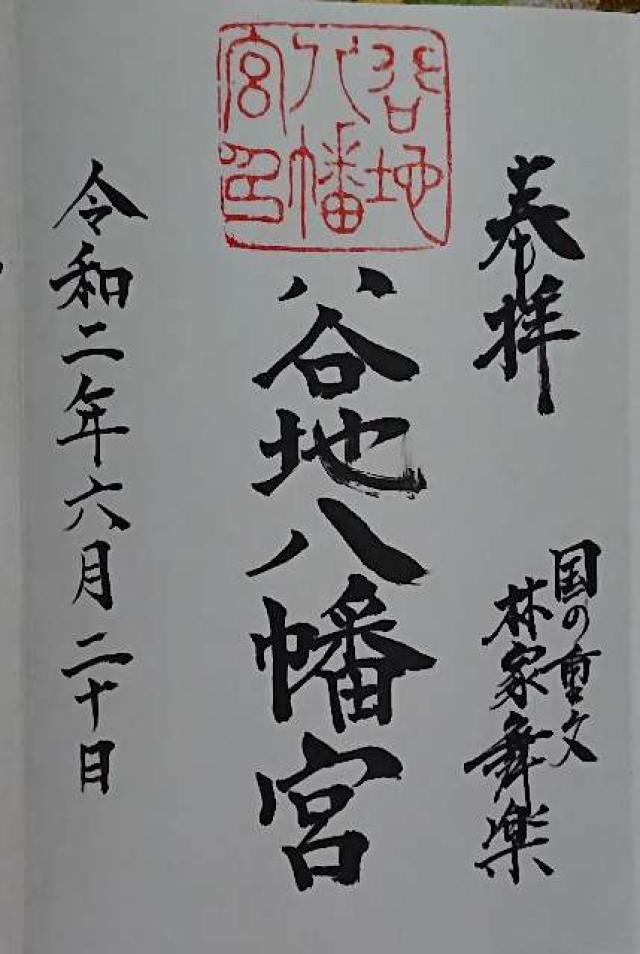 奉拝
国の重文
林家舞楽
谷地
八幡
宮印
谷地八幡宮
令和二年六月二十日